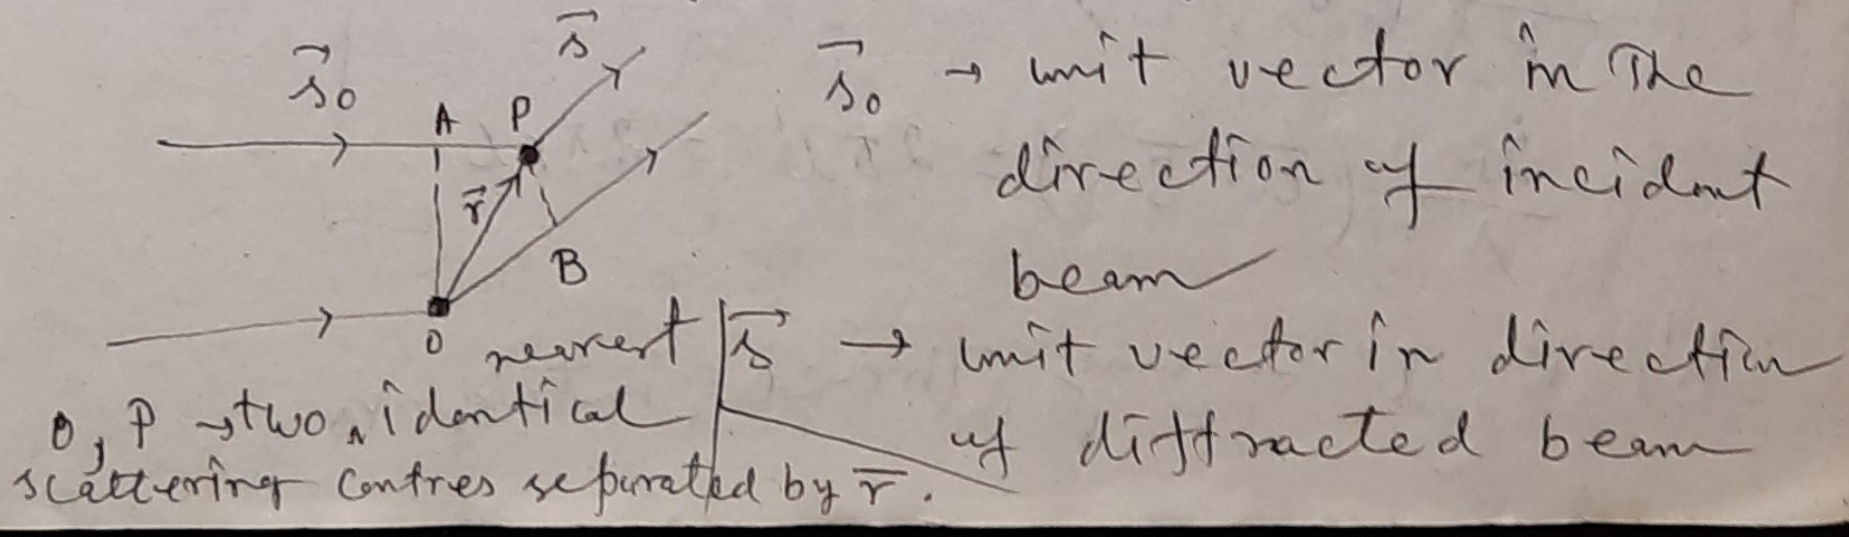 s⃗
s⃗₀
A P
r⃗
B
O
s⃗₀ → unit vector in the
direction of incident
beam
s⃗ → unit vector in direction
of diffracted beam
nearest
O, P → two ‸ identical
scattering centres separated by r̅.